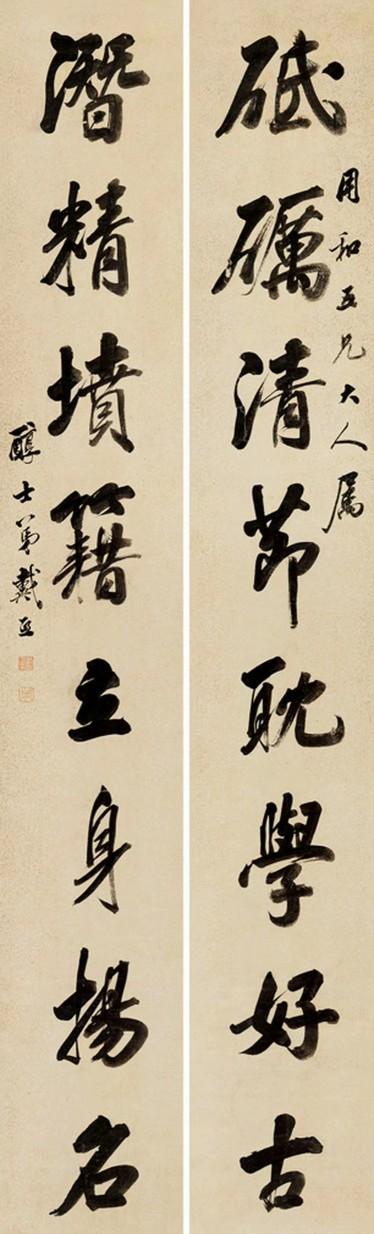 用和五兄大人属
砥礪清節耽學好古
潛精墳籍立身揚名
醇士弟戴熙